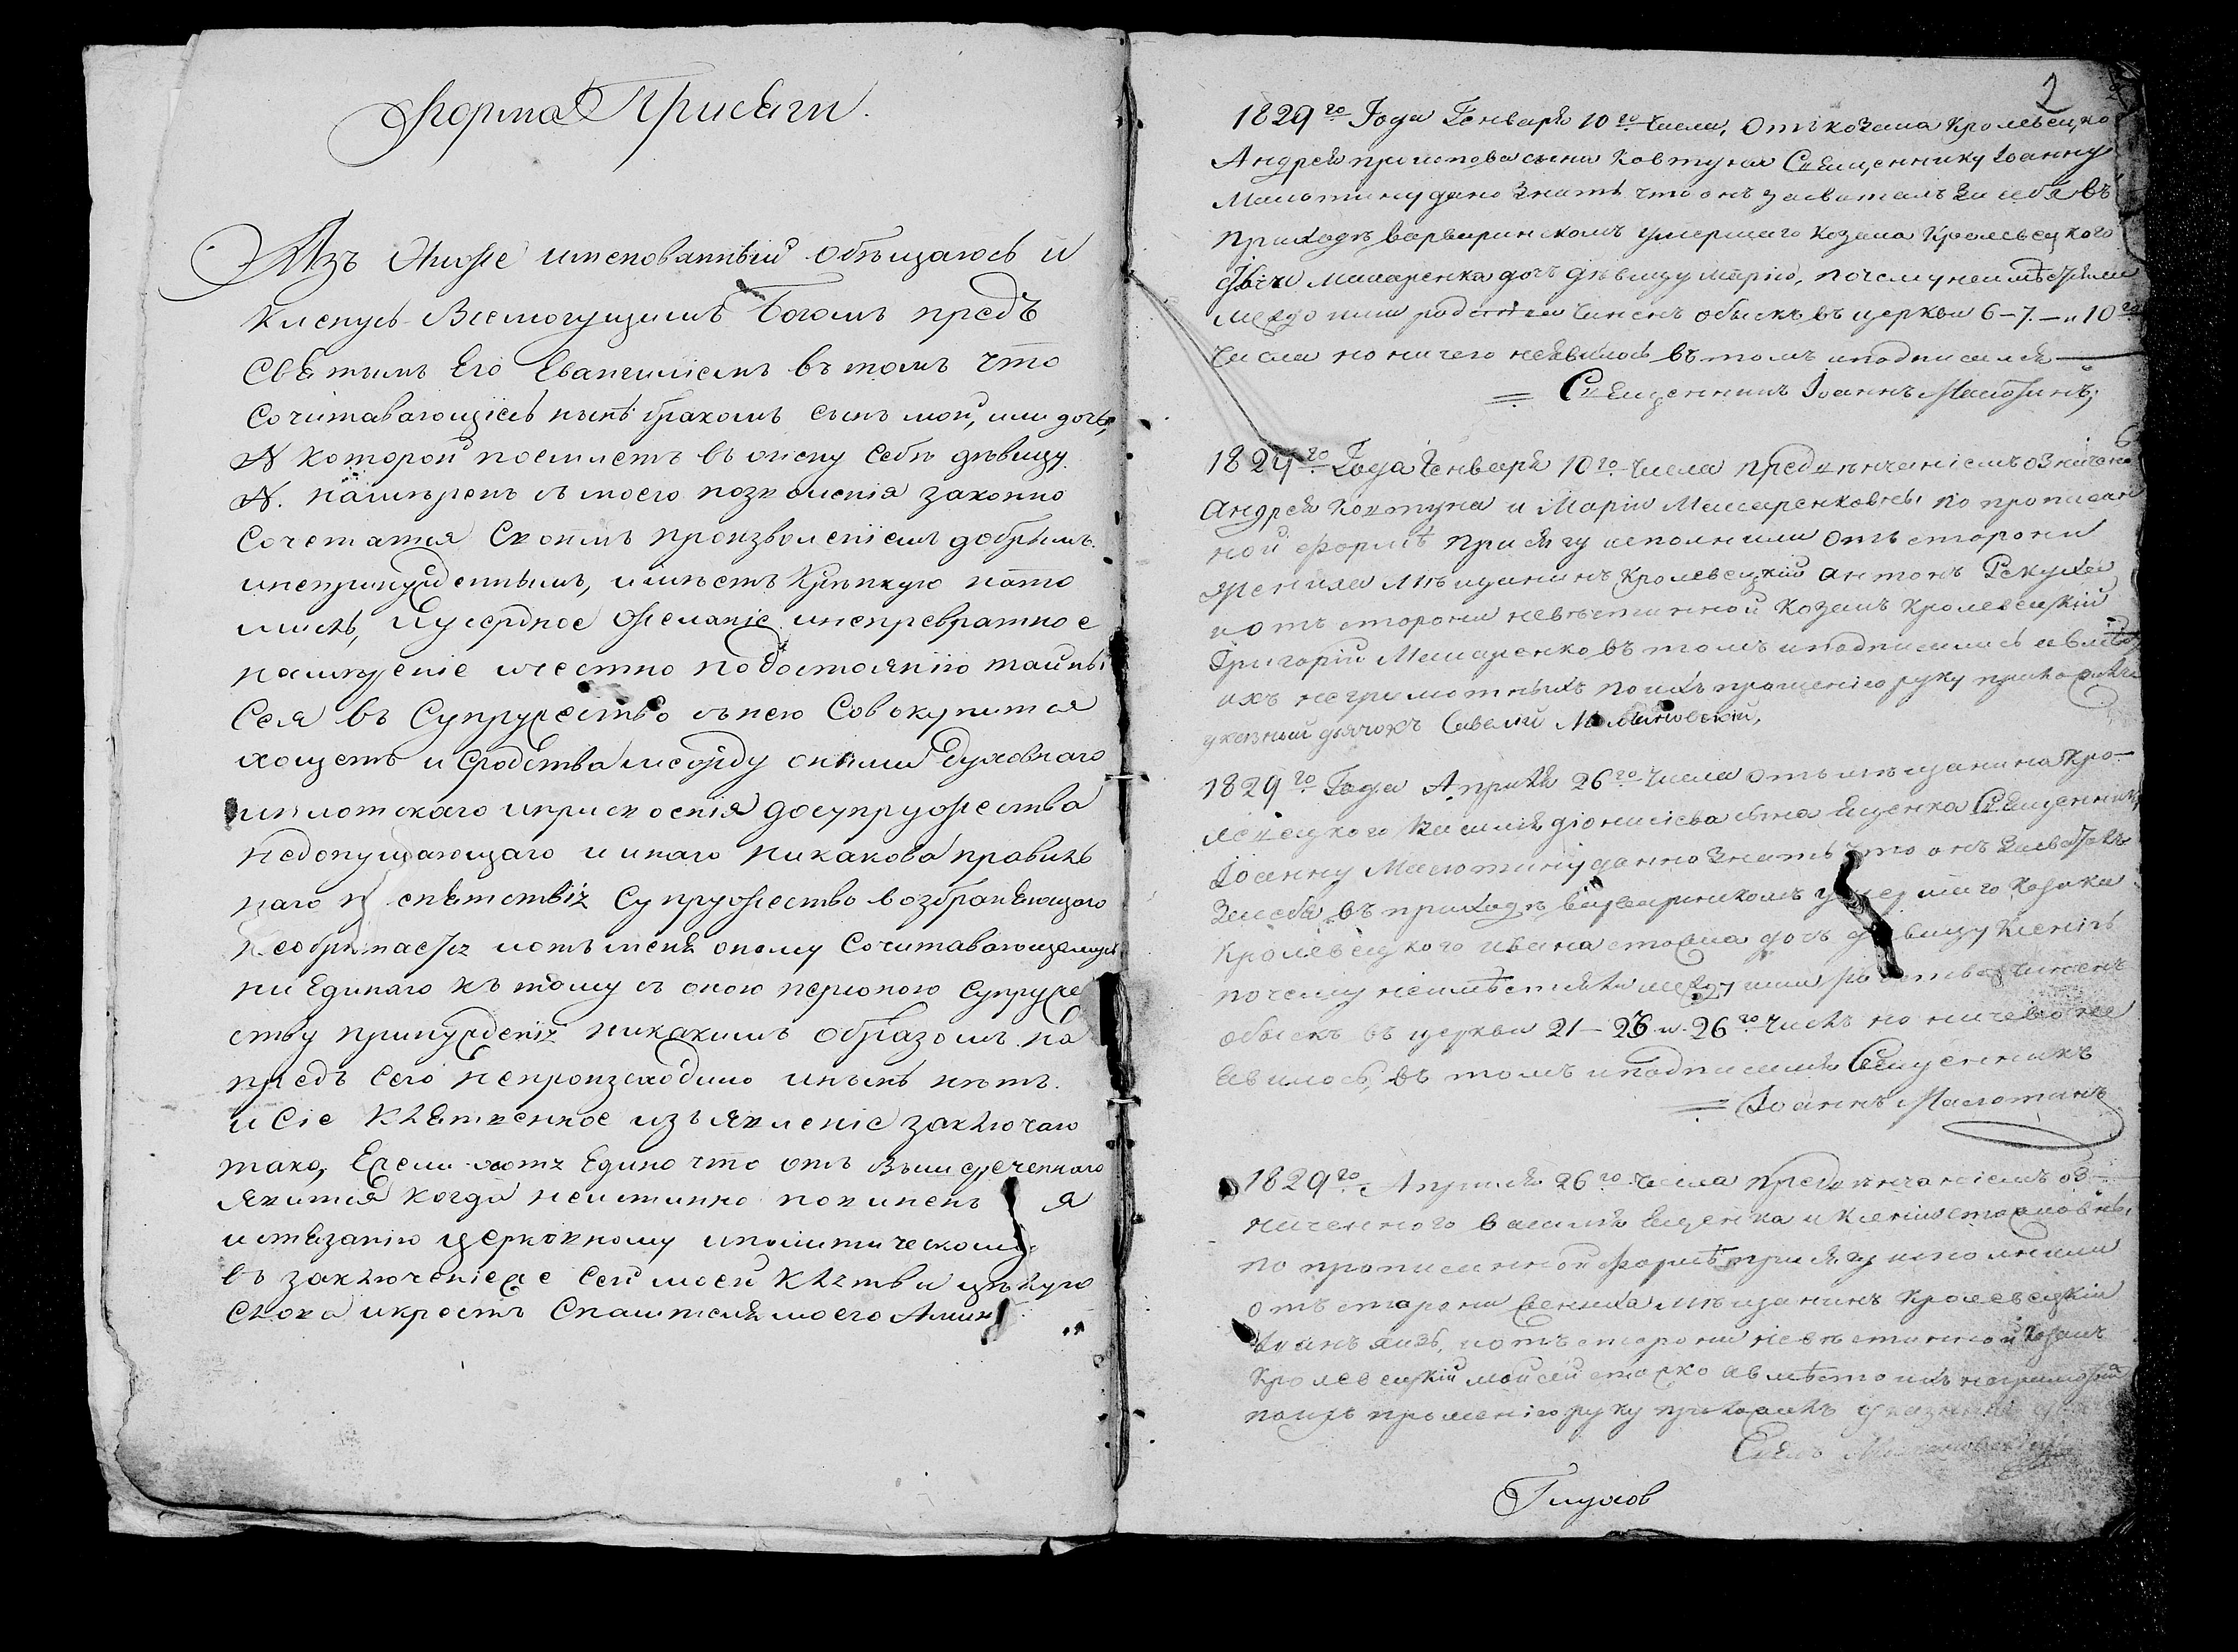 Форма Присяги.
Азъ Ниже именованный обѣщаюсь и
кленусь Всемогущимъ Богомъ предъ
святымъ Его Евангилиемъ въ томъ что
сочитавающийсь нынѣ бракомъ сынъ мой, или дочь,
N которой поемлетъ въ жену себѣ дѣвицу
N. намѣренъ съ моего позволения законно
сочетатся своимъ произволениемъ добрымъ
инепринужденнымъ, имѣетъ крѣпкую намо
мысль, иусердное желание инепревратное
намѣрение ичестно подостоянию тайны
сея въ супружество снею совокупится
хощетъ и сродства между оными духовнаго
иплотскаго иприсвоения досупружества
недопущающаго и инаго никакова правиль
наго п сятствія супружество возбраняющаго
необрѣтается иотъ меня оному сочитавающемусь
ни единаго къ тому с оною персоною супруже
ству принуждения никакимъ образомъ на
предъ сего непроизходило инынѣ нѣтъ.
и сіе клятвенное изъявленіе заключаю
тако, Ежели хотя едино что отъ вышереченнаго
явится когда неистинно повиненъ я
истязанію церковному иполитическому
въ заключеніеже сей моей клятвы цѣлую
слова икрестъ Спасителя моего Аминь
2
1829го Года Генваря 10го числа, Отъ козака Кролевецко
Андрея сына Ковтуна Священнику Іоанну
Масютину дано знать что онъ засваталъ за себя въ
приходѣ варваринскомъ умершаго козака Кролевецкого
Макаренка дочь дѣвицу марію, почему неимѣетсяли
между ими родства чиненъ обыскъ въ церкви 6-7.-и 10го
числа но ничего неявилось въ томъ иподписался
Священникъ Іоаннъ Масютинъ;
1829го Года Генваря 10го числа предвѣнчаніемъ означено
Андрея Ковтуна и Маріи Макаренковны по прописан
ной формѣ присягу исполнили отъ стороны
жениха мѣщанинъ Кролевецкій Антонъ
иотъ стороны невѣстинной козакъ Кролевецкій
Григорій Макаренко въ томъ иподписались авмѣсто
ихъ неграмотныхъ поихъ прощению руку приложилъ
указный дьячокъ Савелій
1829го Года Априля 26го числа отъ мѣщанина Кро-
левецкого Василія діонисіева сына Ященка Священнику
Іоанну Масютину данно знать что онъ засваталъ
засебя въ приходѣ варваринскомъ умершаго козака
Кролевецкого ивана дочь дѣвицу
почему неимѣетсяли между ими родства чиненъ
обыскъ въ церкви 21-23 и 26го числъ но ничево не
явилось, въ томъ иподписался Священникъ
Іоаннъ Масютинъ
1829го Априля 26го числа предвѣнчаніемъ оз-
наченного василія Ященка и
по прописанной формѣ присягу исполнили
отъ стороны жениха мѣщанинъ Кролевецкій
иотъ стороны невѣстинной козакъ
Кролевецкій мойсей авмѣсто ихъ
поихъ прошенію руку приложилъ указный
Глухов